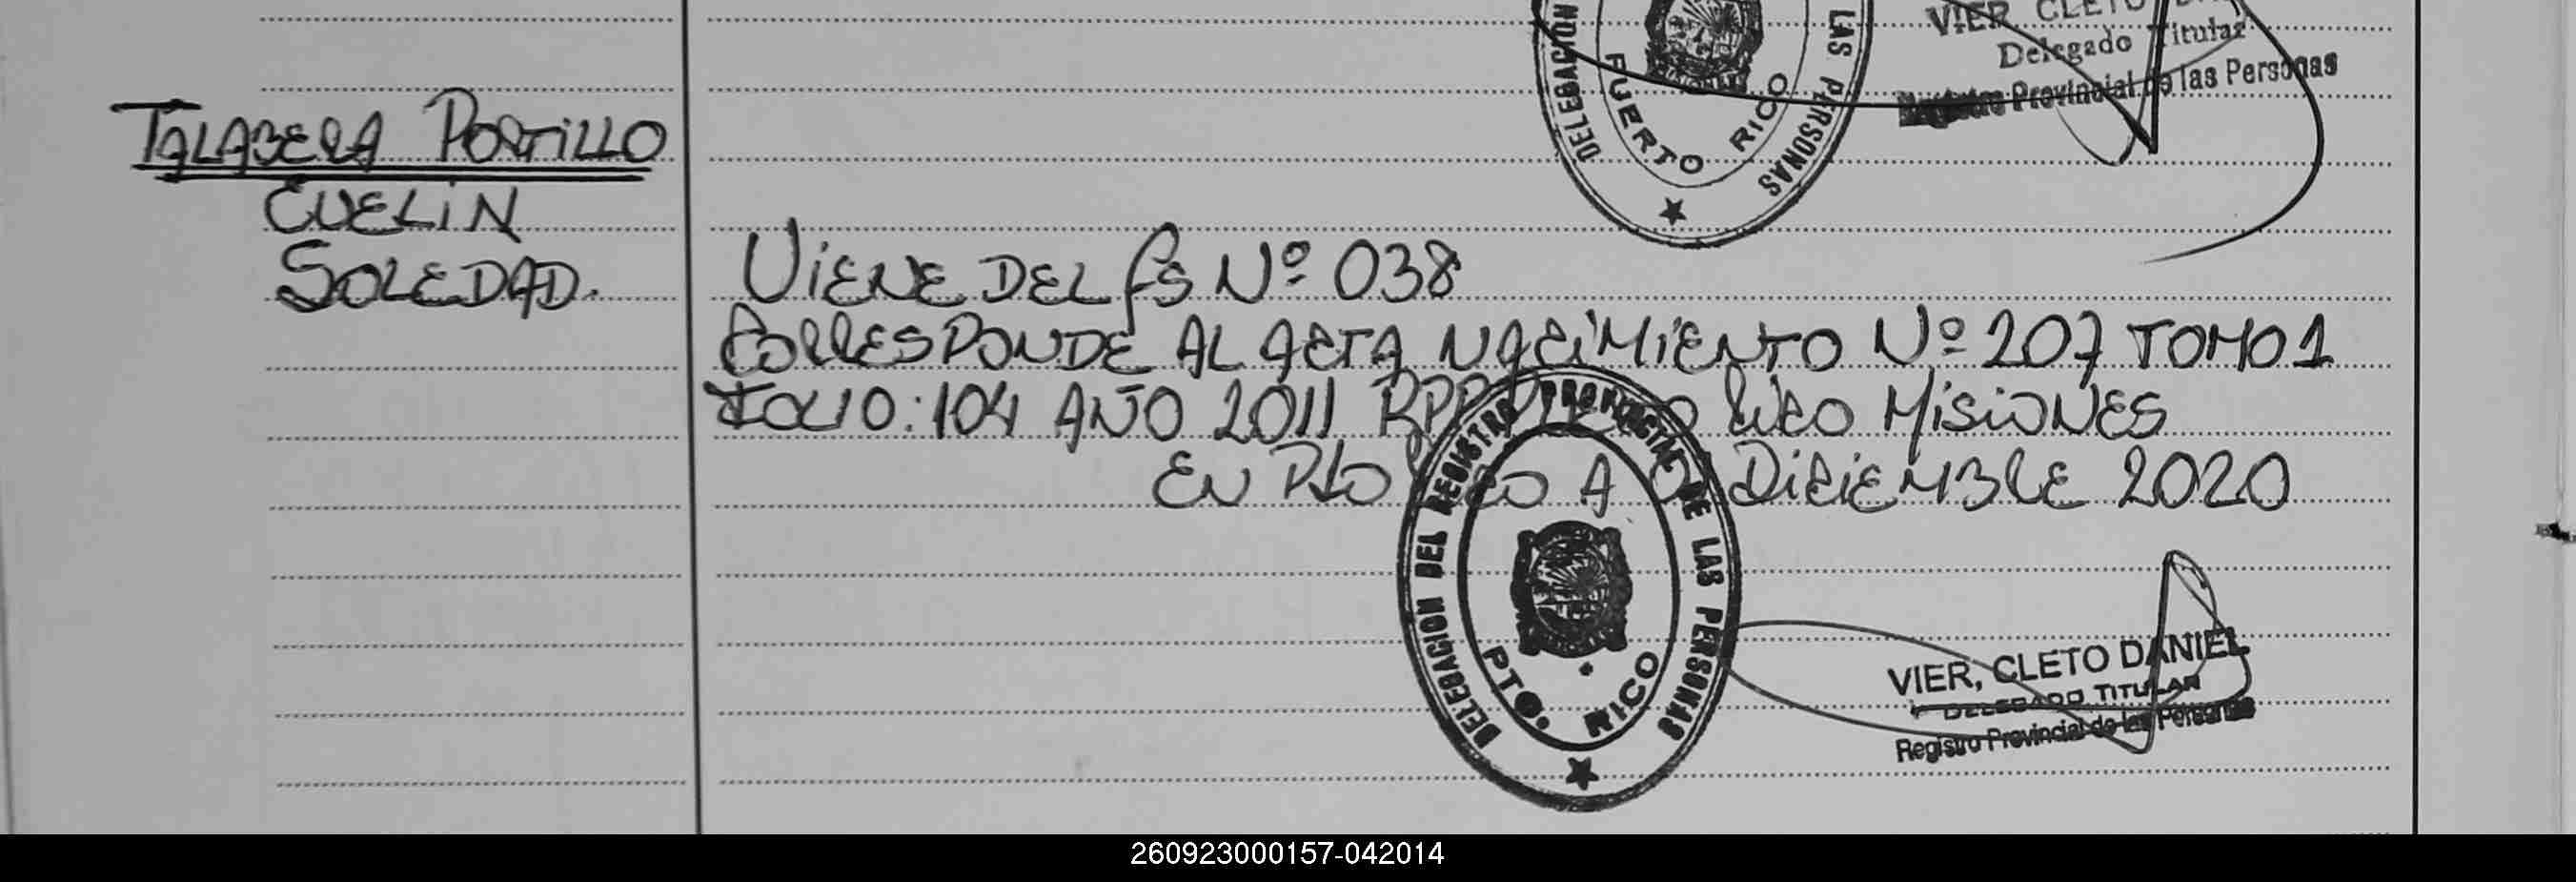 DELEGACION LAS PERSONAS
PUERTO RICO
VIER CLETO
Delegado Titular
Registro Provincial de las Personas
TALABERA PORTILLO
EVELIN
SOLEDAD.
VIENE DEL fs Nº 038
CORRESPONDE AL ACTA NACIMIENTO Nº 207 TOMO 1
FOLIO: 104 AÑO 2011 RPP RICO MISIONES
EN Pto RICO A DICIEMBRE 2020
DELEGACION DEL REGISTRO PROVINCIAL DE LAS PERSONAS
PTO. RICO
VIER, CLETO DANIEL
DELEGADO TITULAR
Registro Provincial de las Personas
260923000157-042014